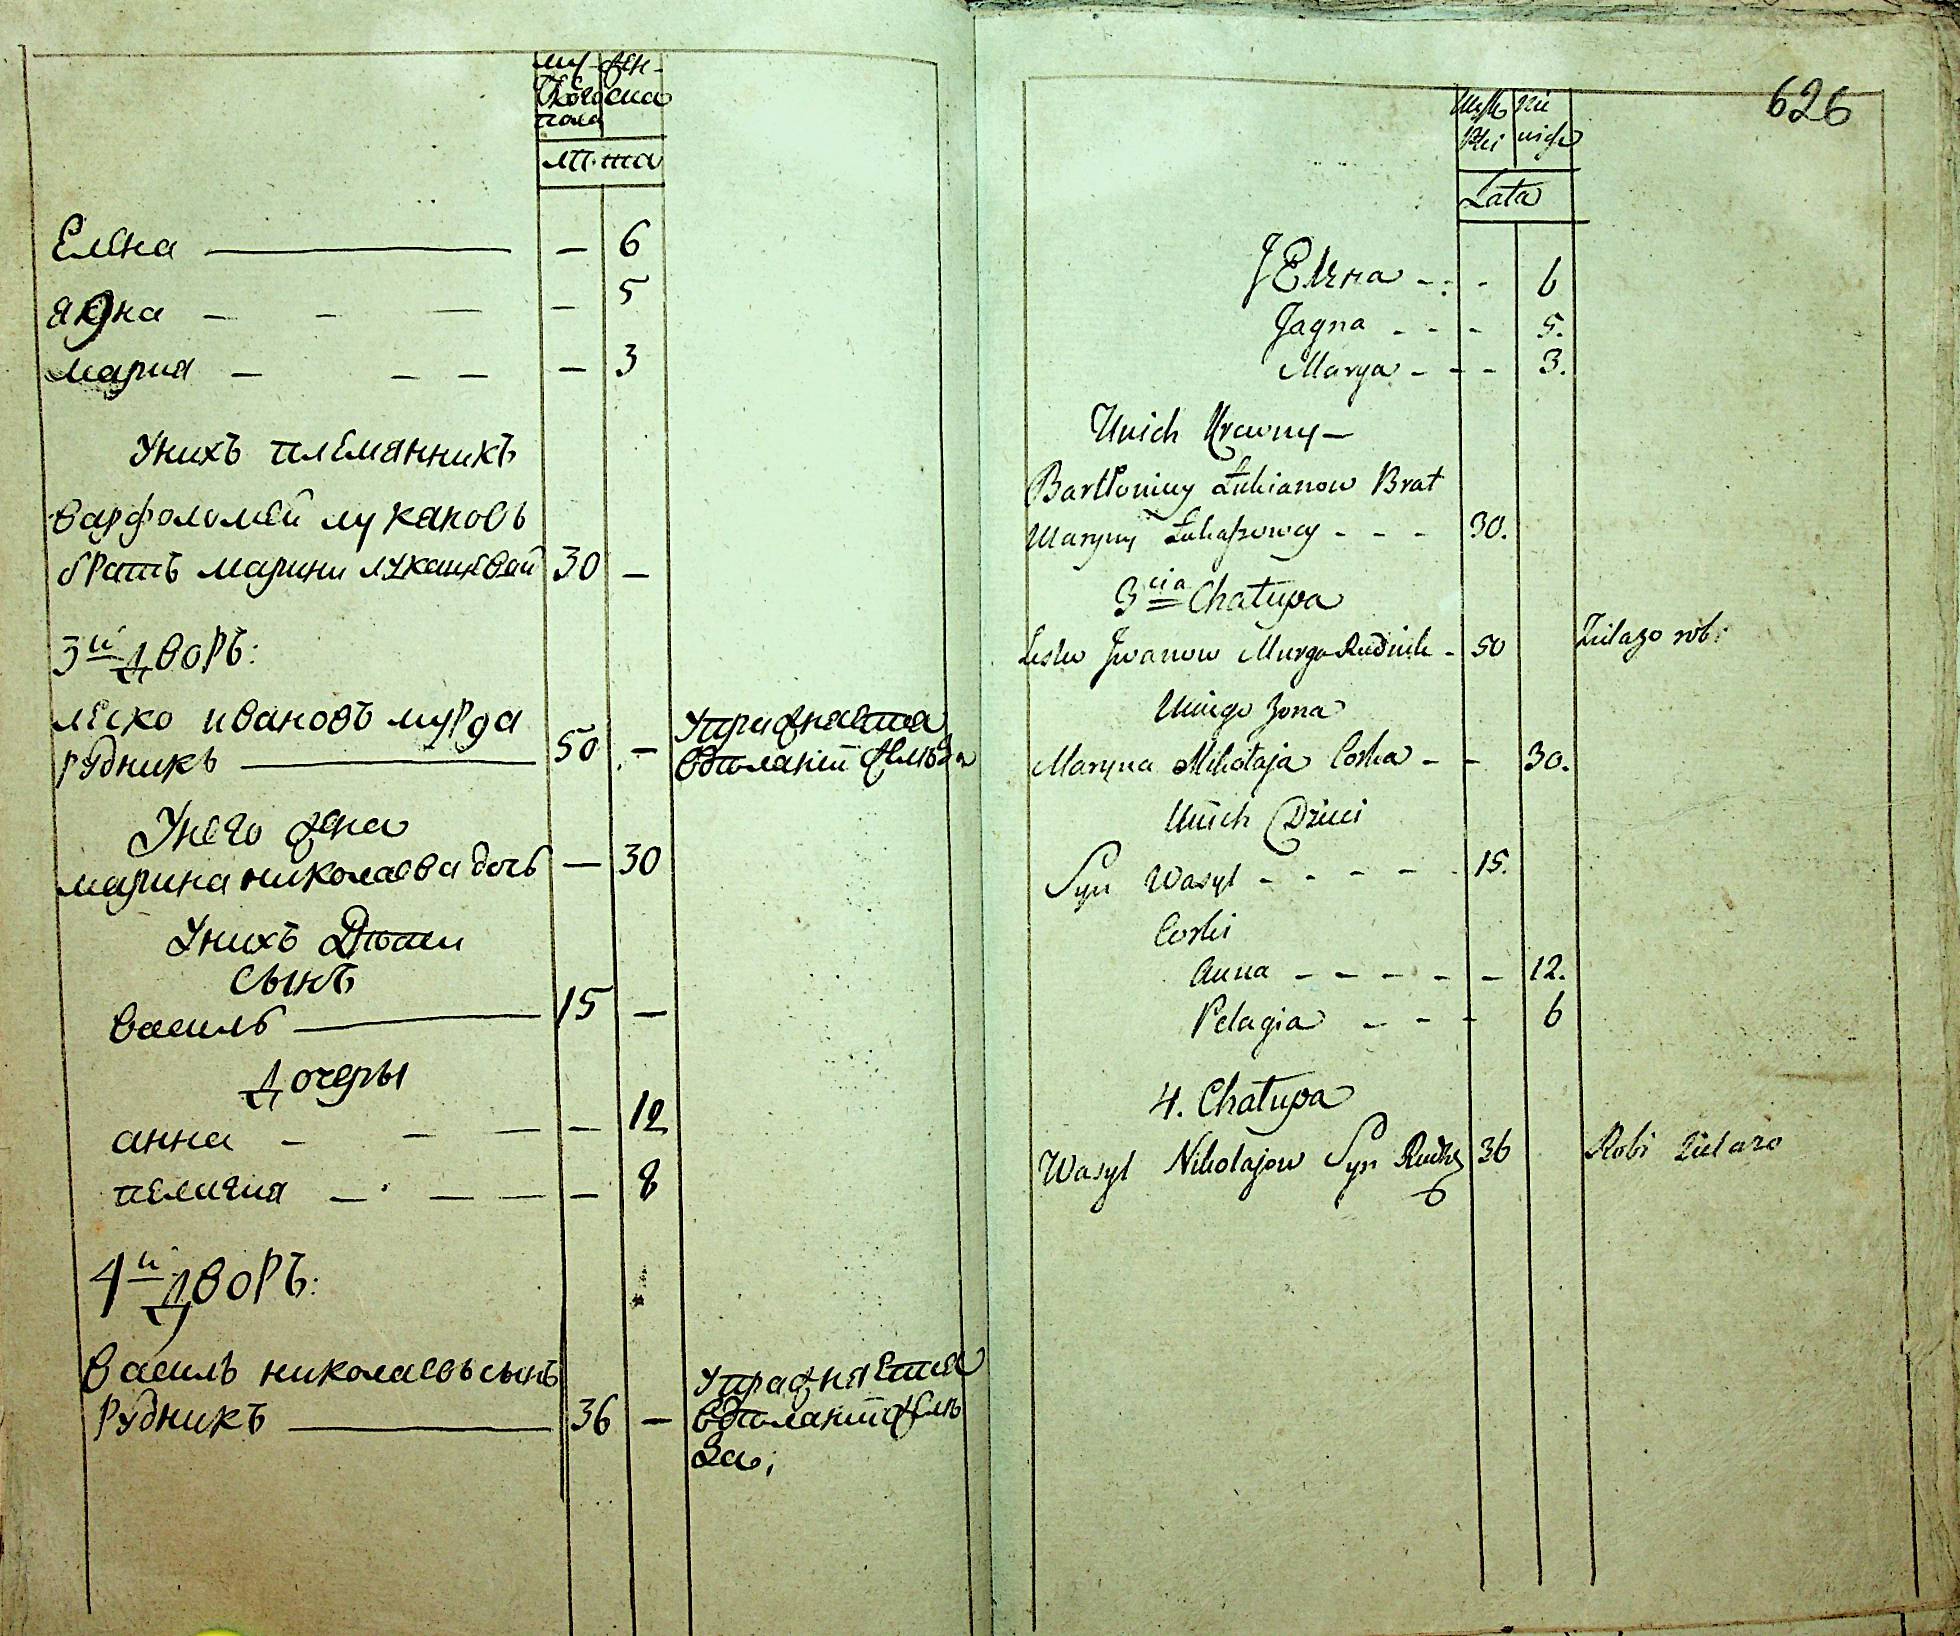 му- жен-
жескаго ска
пола
лѣта
Елена — — 6
Якгна — — — — 5
мария — — — — 3
Унихъ племянникъ
варфоломей лукановъ
братъ марини луканцевай 30 —
3й дворъ:
леско ивановъ мурга
рудникъ — 50 — Упражняется
вдѣланіи желѣза
Унего жена
марина николаева дочь — 30
Унихъ Дѣти
сынъ
василь — 15 —
дочеры
анна — — — — 12
пелагия — — — — 8
4й дворъ:
василь николаевъ сынъ
рудникъ — 36 — Упражняется
вдѣланіи желѣ
за;
626
Męsk nie
kiei wiście
Lata
JElena - - - 6
Jagna - - - 5.
Marya - - - 3.
Unich Krewny —
Bartłomiey Łukianow Brat
Maryny Łukaszowey - - - 30.
3cia Chałupa
Lesko Jwanow Murga Rudnik - 50 Żelazo rob:
Uniego Zona
Maryna Mikołaja Corka - - 30.
Unich Dzieci
Syn Wasyl - - - - - 15.
Corki
Anna - - - - - 12.
Pelagia - - - 6
4. Chałupa
Wasyl Nikołajow Syn Rudn 36 Robi żelazo